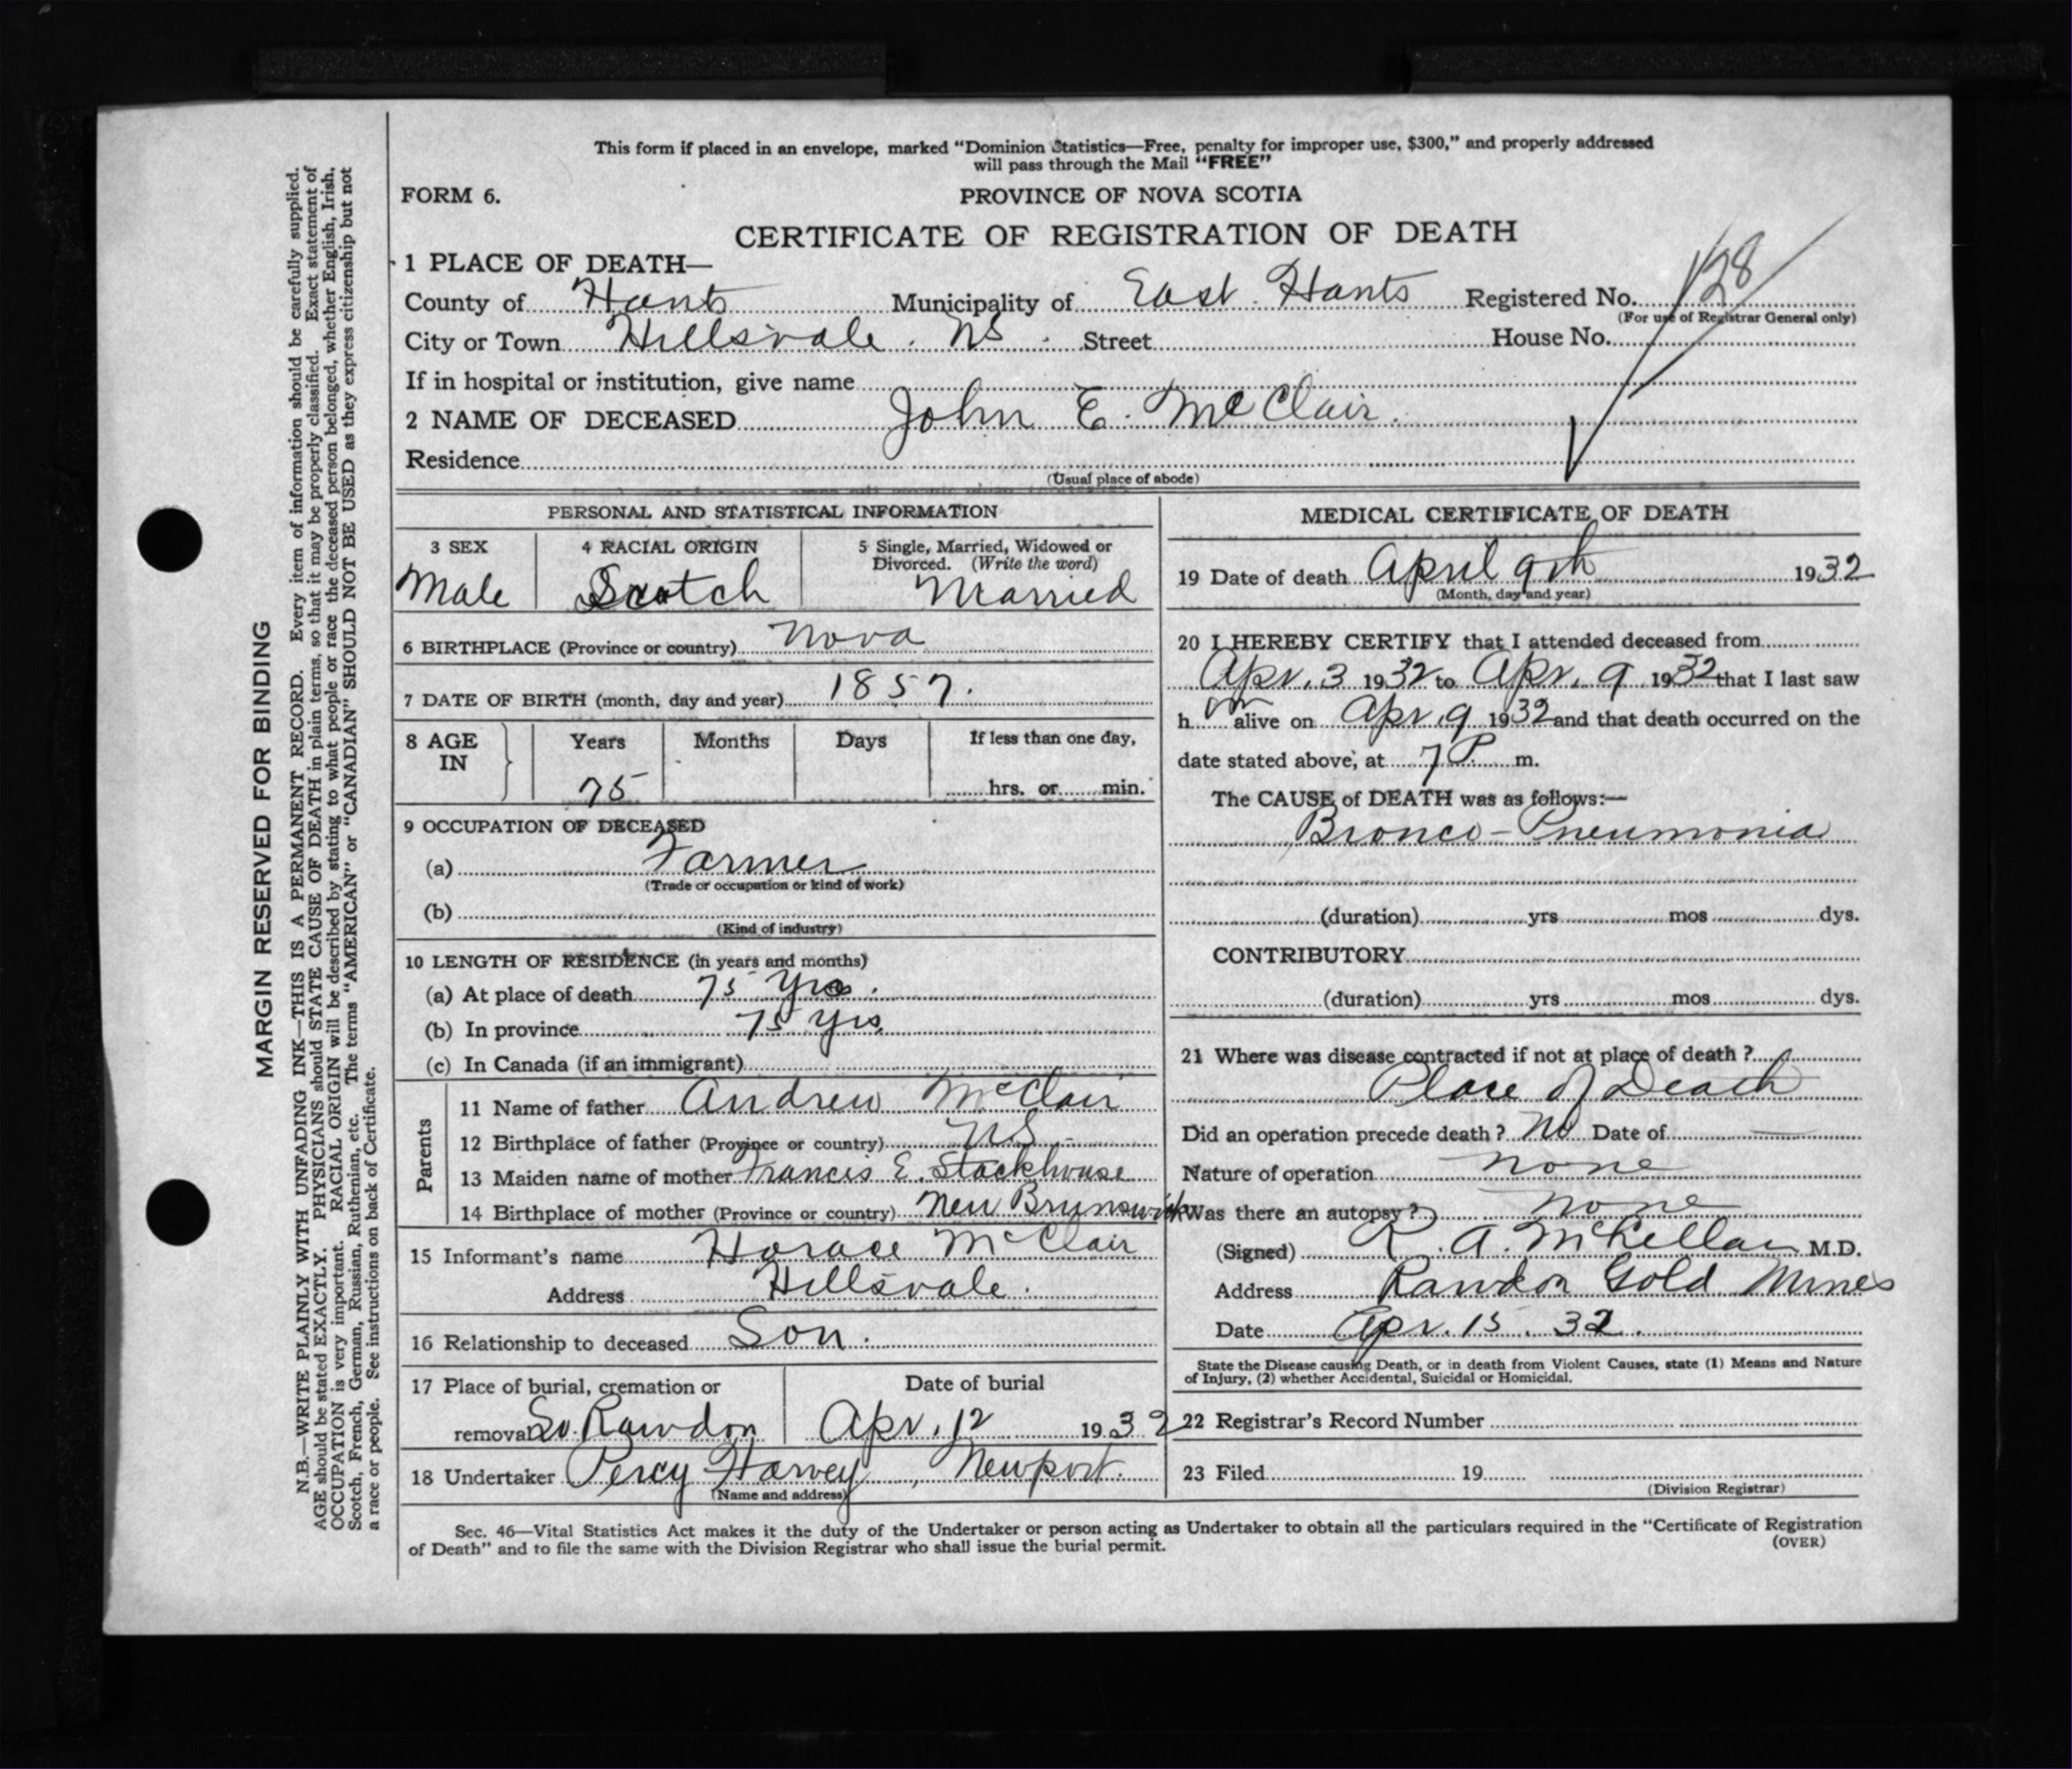 This form if placed in an envelope, marked “Dominion Statistics—Free, penalty for improper use, $300,” and properly addressed
will pass through the Mail “FREE”
FORM 6.
PROVINCE OF NOVA SCOTIA
CERTIFICATE OF REGISTRATION OF DEATH
1 PLACE OF DEATH—
County of Hants Municipality of East Hants Registered No. 128
(For use of Registrar General only)
City or Town Hillsvale. NS. Street House No.
If in hospital or institution, give name
2 NAME OF DECEASED John E. McClair.
Residence
(Usual place of abode)
PERSONAL AND STATISTICAL INFORMATION
3 SEX 4 RACIAL ORIGIN 5 Single, Married, Widowed or
Divorced. (Write the word)
Male Scotch Married
6 BIRTHPLACE (Province or country) Nova
7 DATE OF BIRTH (month, day and year) 1857.
8 AGE IN Years Months Days If less than one day,
75 hrs. or min.
9 OCCUPATION OF DECEASED
(a) Farmer
(Trade or occupation or kind of work)
(b)
(Kind of industry)
10 LENGTH OF RESIDENCE (in years and months)
(a) At place of death 75 Yrs.
(b) In province 75 yrs
(c) In Canada (if an immigrant)
Parents
11 Name of father Andrew McClair
12 Birthplace of father (Province or country) NS.
13 Maiden name of mother Francis E. Stackhouse
14 Birthplace of mother (Province or country) New Brunswick
15 Informant's name Horace McClair
Address Hillsvale.
16 Relationship to deceased Son.
17 Place of burial, cremation or Date of burial
removal So. Rawdon Apr. 12 1932
18 Undertaker Percy Harvey, Newport.
(Name and address)
MEDICAL CERTIFICATE OF DEATH
19 Date of death April 9th 1932
(Month, day and year)
20 I HEREBY CERTIFY that I attended deceased from
Apr. 3 1932 to Apr. 9 1932 that I last saw
h im alive on Apr. 9 1932 and that death occurred on the
date stated above, at 7 P. m.
The CAUSE of DEATH was as follows:—
Bronco-Pneumonia
(duration) yrs mos dys.
CONTRIBUTORY
(duration) yrs mos dys.
21 Where was disease contracted if not at place of death ?
Place of Death
Did an operation precede death ? No Date of —
Nature of operation none
Was there an autopsy ? none
(Signed) R. A. McKellar M.D.
Address Rawdon Gold Mines
Date Apr. 15. 32.
State the Disease causing Death, or in death from Violent Causes, state (1) Means and Nature
of Injury, (2) whether Accidental, Suicidal or Homicidal.
22 Registrar's Record Number
23 Filed 19
(Division Registrar)
Sec. 46—Vital Statistics Act makes it the duty of the Undertaker or person acting as Undertaker to obtain all the particulars required in the “Certificate of Registration
of Death” and to file the same with the Division Registrar who shall issue the burial permit.
(OVER)
MARGIN RESERVED FOR BINDING
N.B.—WRITE PLAINLY WITH UNFADING INK—THIS IS A PERMANENT RECORD. Every item of information should be carefully supplied.
AGE should be stated EXACTLY. PHYSICIANS should STATE CAUSE OF DEATH in plain terms, so that it may be properly classified. Exact statement of
OCCUPATION is very important. RACIAL ORIGIN will be described by stating to what people or race the deceased person belonged, whether English, Irish,
Scotch, French, German, Russian, Ruthenian, etc. The terms “AMERICAN” or “CANADIAN” SHOULD NOT BE USED as they express citizenship but not
a race or people. See instructions on back of Certificate.